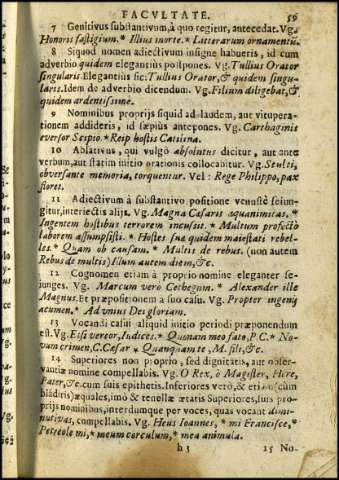 FACULTATE. 59
7 Genitivus substantivum, à quo regitur, antecedat. Vg.
Honoris fastigium. * Illius morte. * Litterarum ornamentū.
8 Siquod nomen adiectivum insigne habueris, id cum
adverbio quidem elegantiùs postpones. Vg. Tullius Orator
singularis. Elegantiùs sic: Tullius Orator, & quidem singu-
laris. Idem de adverbio dicendum. Vg. Filium diligebat, &
quidem ardentissimè.
9 Nominibus proprijs siquid ad laudem, aut vitupera-
tionem addideris, id sæpiùs antepones. Vg. Carthaginis
eversor Scipio. * Reip hostis Catilina.
10 Ablativus, qui vulgò absolutus dicitur, aut ante
verbum, aut statim initio orationis collocabitur. Vg. Stulti,
obversante memoria, torquentur. Vel: Rege Philippo, pax
floret.
11 Adiectivum à substantivo positione venustè seiun-
gitur, interiectis alijs. Vg. Magna Cæsaris æquanimitas. *
Ingentem hostibus terrorem incussit. * Multum profectò
laborem assumpsisti. * Hostes suæ quidem maiestati rebel-
les. * Quam ob causam. * Multis de rebus. (non autem
Rebus de multis) Illum autem diem, &c.
12 Cognomen etiam à proprio nomine eleganter se-
iunges. Vg. Marcum verò Cethegum. * Alexander ille
Magnus. Et præpositionem à suo casu. Vg. Propter ingenij
acumen. * Ad unius Dei gloriam.
13 Vocandi casui aliquid initio periodi præponendum
est. Vg. Etsi vereor, Iudices. * Quonam meo fato, P.C. * No-
vum crimen, C. Cæsar * Quanquam te, M. fili, &c.
14 Superiores non proprio, sed dignitatis, aut obser-
vantiæ nomine compellabis. Vg. O Rex, ô Magister, Here,
Pater, &c. cum suis epithetis. Inferiores verò, & etiam (cum
blāditijs) æquales, imò & tenellæ ætatis Superiores, suis pro-
prijs nominibus, interdumque per voces, quas vocant dimi-
nutivas, compellabis. Vg. Heus Ioannes, * mi Francisce, *
Petreole mi, * meum corculum, * mea animula.
h 3 15 No-